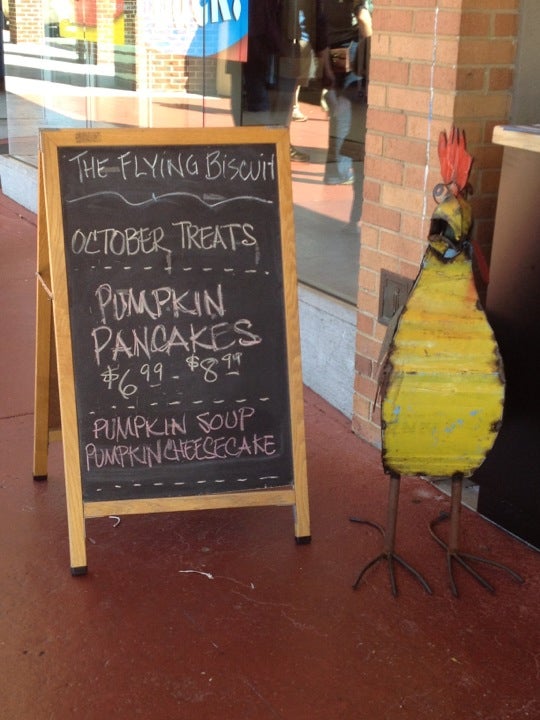 THE FLYING BISCUIT
OCTOBER TREATS
PUMPKIN
PANCAKES
$6.99 - $8.99
PUMPKIN SOUP
PUMPKIN CHEESECAKE